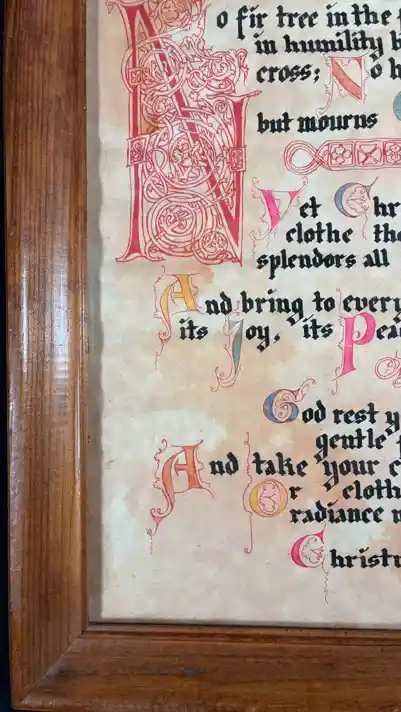 No fir tree in the
in humility
cross; No
but mourns
Yet Chr
clothe
splendors all
And bring to every
its Joy, its Pea
God rest y
gentle
And take your c
Or cloth
radiance
Christ